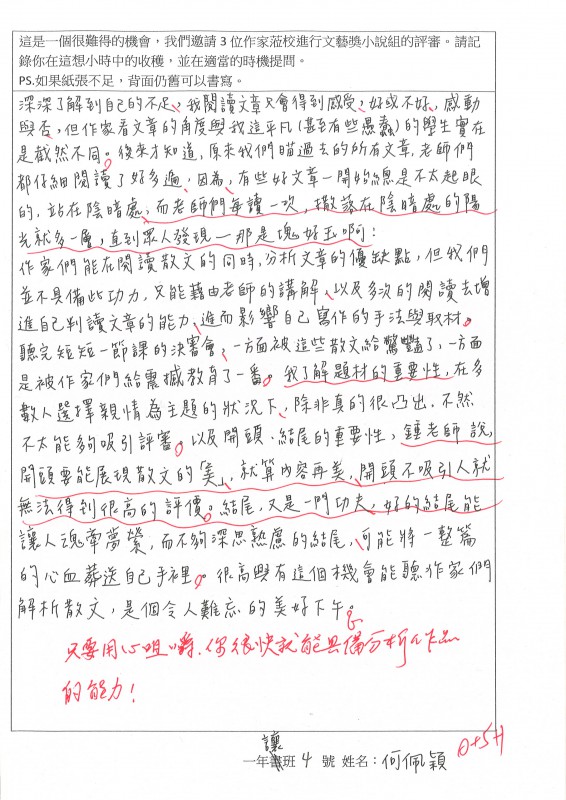 這是一個很難得的機會，我們邀請 3 位作家蒞校進行文藝獎小說組的評審。請記
錄你在這想小時中的收穫，並在適當的時機提問。
PS.如果紙張不足，背面仍舊可以書寫。
深深了解到自己的不足，我閱讀文章只會得到感受，好或不好、感動
與否，但作家看文章的角度與我這平凡(甚至有些愚蠢)的學生實在
是截然不同。後來才知道，原來我們瞄過去的所有文章，老師們
都仔細閱讀了好多遍，因為，有些好文章一開始總是不太起眼
的，站在陰暗處，而老師們每讀一次，撒落在陰暗處的陽
光就多一層，直到眾人發現—那是塊好玉啊！
作家們能在閱讀散文的同時，分析文章的優缺點，但我們
並不具備些功力，只能藉由老師的講解、以及多次的閱讀去增
進自己判讀文章的能力，進而影響自己寫作的手法與取材。
聽完短短一節課的決審會，一方面被這些散文給驚豔了，一方面
是被作家們給震撼教育了一番。我了解題材的重要性，在多
數人選擇親情為主題的狀況下，除非真的很凸出，不然
不太能夠吸引評審。以及開頭、結尾的重要性，鍾老師說，
開頭要能展現散文的「美」，就算內容再美，開頭不吸引人就
無法得到很高的評價。結尾，又是一門功夫，好的結尾能
讓人魂牽夢縈，而不夠深思熟慮的結尾，可能將一整篇
的心血葬送自己手裡。很高興有這個機會能聽作家們
解析散文，是個令人難忘的美好下午。
只要用心咀嚼，你很快就能具備分析作品
的能力！
讓
一年 班 4 號 姓名：何佩穎